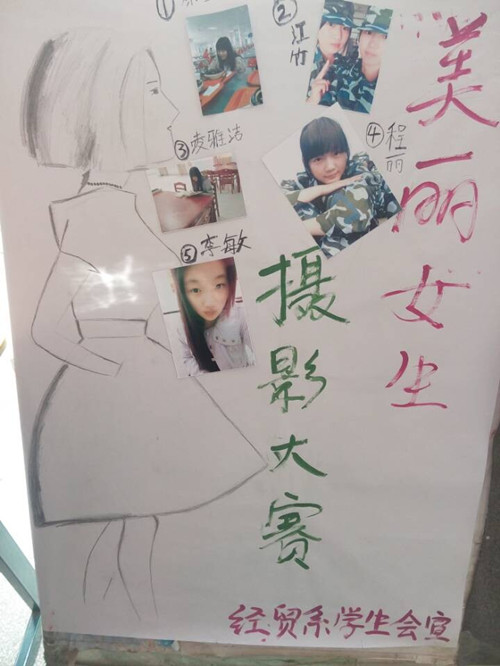 ①
②江竹
③凌雅洁
④程丽
⑤李敏
美丽女生
摄影大赛
经贸系学生会宣